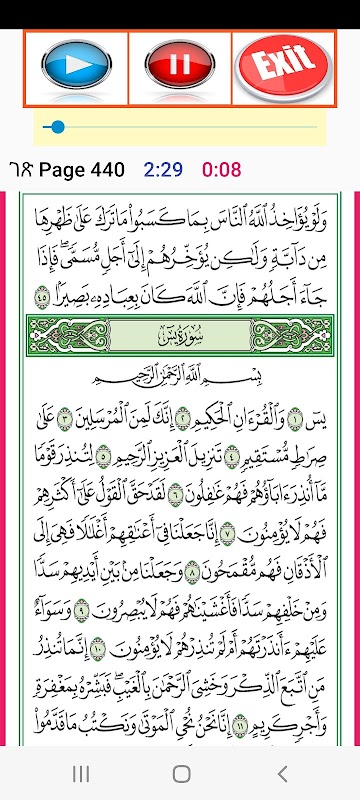 Exit
ገጽ Page 440 2:29 0:08
وَلَوْ يُؤَاخِذُ اللَّهُ النَّاسَ بِمَا كَسَبُوا مَا تَرَكَ عَلَىٰ ظَهْرِهَا
مِن دَآبَّةٍ وَلَٰكِن يُؤَخِّرُهُمْ إِلَىٰ أَجَلٍ مُّسَمًّى ۖ فَإِذَا
جَآءَ أَجَلُهُمْ فَإِنَّ اللَّهَ كَانَ بِعِبَادِهِ بَصِيرًا ٤٥
سُورَةُ يسٓ
بِسْمِ اللَّهِ الرَّحْمَٰنِ الرَّحِيمِ
يسٓ ١ وَالْقُرْءَانِ الْحَكِيمِ ٢ إِنَّكَ لَمِنَ الْمُرْسَلِينَ ٣ عَلَىٰ
صِرَاطٍ مُّسْتَقِيمٍ ٤ تَنزِيلَ الْعَزِيزِ الرَّحِيمِ ٥ لِتُنذِرَ قَوْمًا
مَّآ أُنذِرَ ءَابَآؤُهُمْ فَهُمْ غَٰفِلُونَ ٦ لَقَدْ حَقَّ الْقَوْلُ عَلَىٰٓ أَكْثَرِهِمْ
فَهُمْ لَا يُؤْمِنُونَ ٧ إِنَّا جَعَلْنَا فِىٓ أَعْنَٰقِهِمْ أَغْلَٰلًا فَهِىَ إِلَى
الْأَذْقَانِ فَهُم مُّقْمَحُونَ ٨ وَجَعَلْنَا مِنۢ بَيْنِ أَيْدِيهِمْ سَدًّا
وَمِنْ خَلْفِهِمْ سَدًّا فَأَغْشَيْنَٰهُمْ فَهُمْ لَا يُبْصِرُونَ ٩ وَسَوَآءٌ
عَلَيْهِمْ ءَأَنذَرْتَهُمْ أَمْ لَمْ تُنذِرْهُمْ لَا يُؤْمِنُونَ ١٠ إِنَّمَا تُنذِرُ
مَنِ اتَّبَعَ الذِّكْرَ وَخَشِىَ الرَّحْمَٰنَ بِالْغَيْبِ ۖ فَبَشِّرْهُ بِمَغْفِرَةٍ
وَأَجْرٍ كَرِيمٍ ١١ إِنَّا نَحْنُ نُحْىِ الْمَوْتَىٰ وَنَكْتُبُ مَا قَدَّمُوا